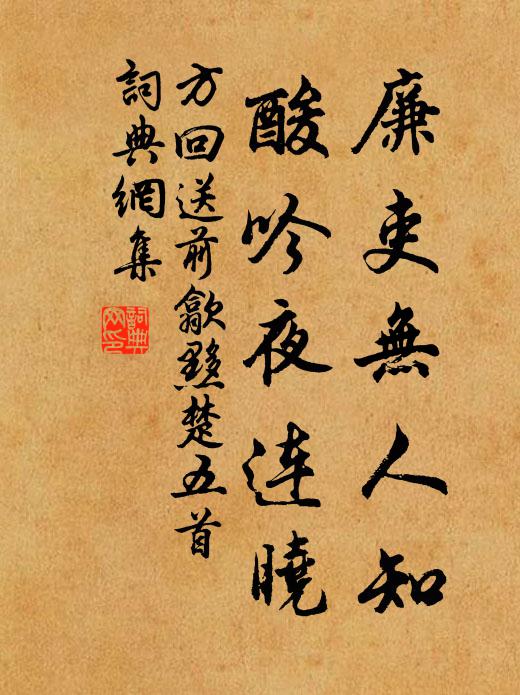 廉吏無人知
酸吟夜連曉
方回送前歙黟楚五首
詞典網集
詞典網印